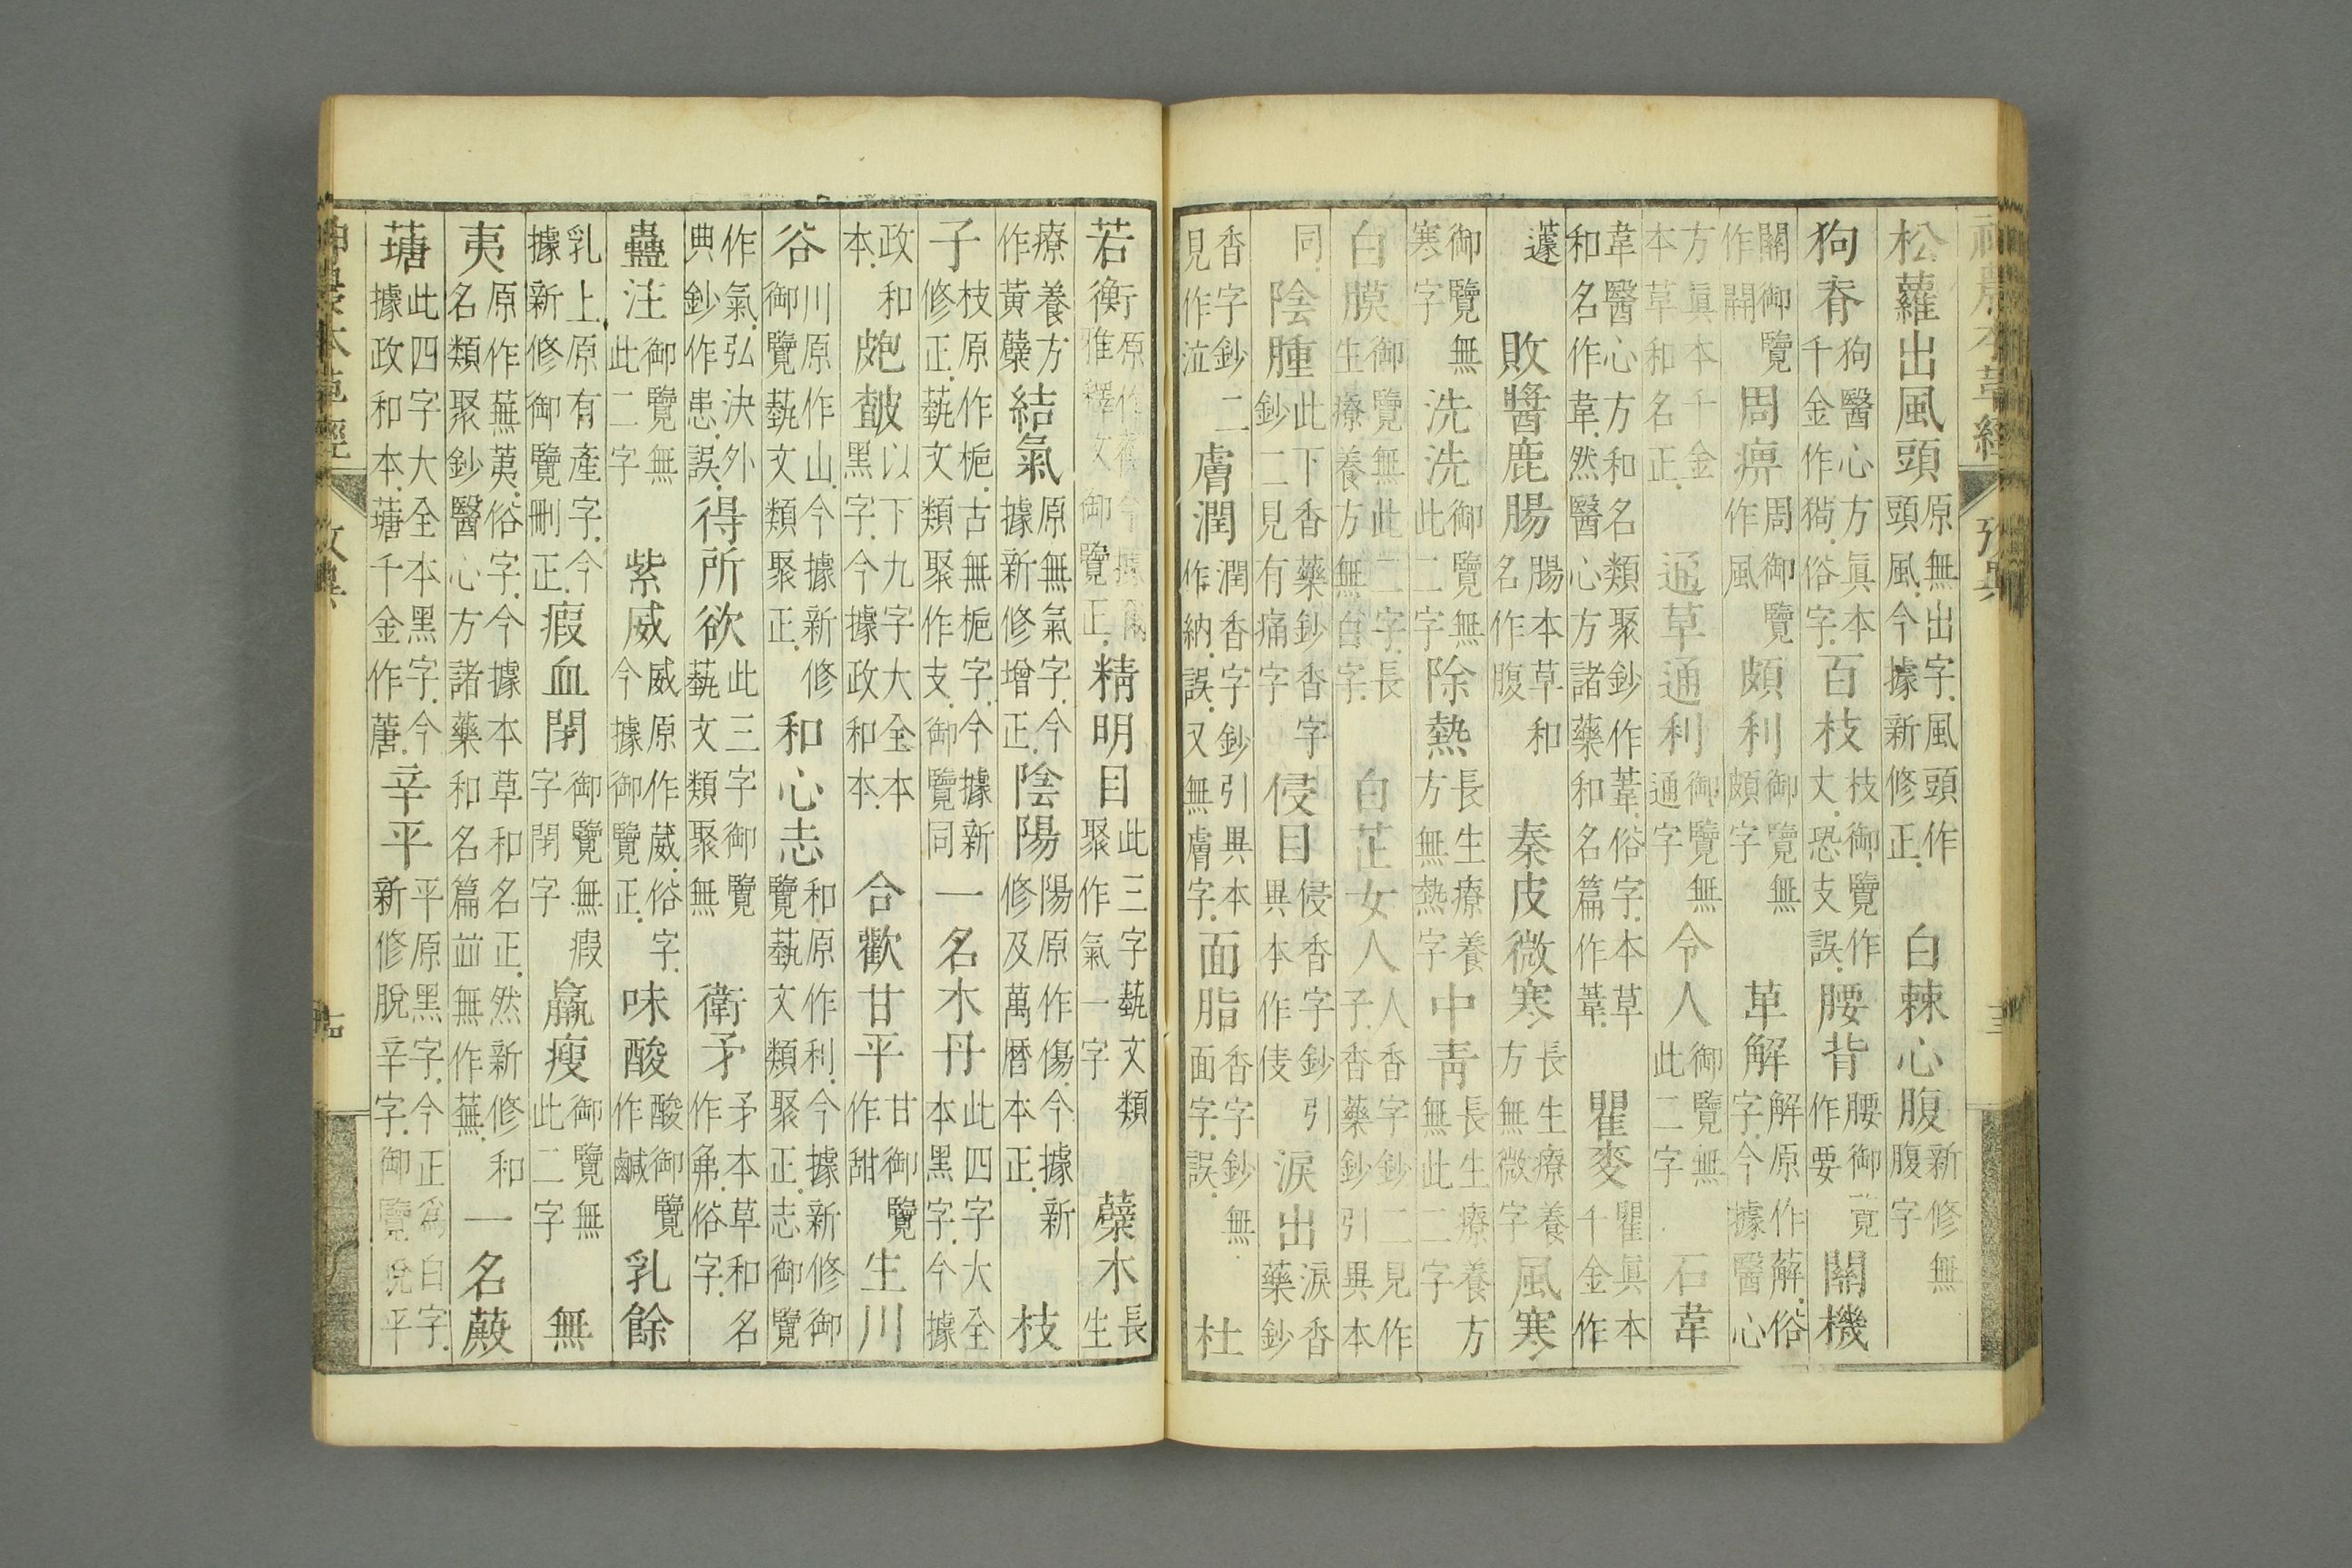 神農本草經 攷異 十三
松蘿出風頭原無出字風頭作頭風今據新修正 白棘心腹新修無腹字
狗脊狗醫心方眞本千金作猗俗字百枝枝御覽作丈恐支誤腰背腰御覽作要關機
關御覽作開周痹周御覽作風頗利御覽無頗字 萆解解原作薢俗字今據醫心
方眞本千金本草和名正 通草通利御覽無通字令人御覽無此二字 石韋
韋醫心方和名類聚鈔作葦俗字本草和名作韋然醫心方諸藥和名篇作葦 瞿麥瞿眞本千金作
蘧 敗醬鹿腸腸本草和名作腹 秦皮微寒長生療養方無微字風寒
御覽無寒字洗洗御覽無此二字除熱長生療養方無熱字中青長生療養方無此二字
白膜御覽無此二字長生療養方無白字 白芷女人人香字鈔二見作子香藥鈔引異本
同陰腫此下香藥鈔香字鈔二見有痛字侵目侵香字鈔引異本作㑴淚出淚香藥鈔
香字鈔二見作泣膚潤潤香字鈔引異本作納誤又無膚字面脂香字鈔無面字誤 杜
若衡原作蘅今據爾雅釋文御覽正精明目此三字藝文類聚作氣一字 蘗木長生
療養方作黃蘗結氣原無氣字今據新修增正陰陽陽原作傷今據新修及萬曆本正 枝
子枝原作梔古無梔字今據新修正藝文類聚作支御覽同一名木丹此四字大全本黑字今據
政和本皰皶以下九字大全本黑字今據政和本 合歡甘平甘御覽作甜生川
谷川原作山今據新修御覽藝文類聚正和心志和原作利今據新修御覽藝文類聚正志御覽
作氣弘決外典鈔作患誤得所欲此三字御覽藝文類聚無 衛矛矛本草和名作俗字
蠱注御覽無此二字 紫威威原作葳俗字今據御覽正味酸酸御覽作鹹乳餘
乳上原有產字今據新修御覽刪正瘕血閉御覽無瘕字閉字羸瘦御覽無此二字 無
夷原作蕪荑俗字今據本草和名正然新修和名類聚鈔醫心方諸藥和名篇並無作蕪一名蕨
𦽡此四字大全本黑字今據政和本𦽡千金作蓎辛平平原黑字今正爲白字新修脫辛字御覽脫平
神農本草經 攷異 十四